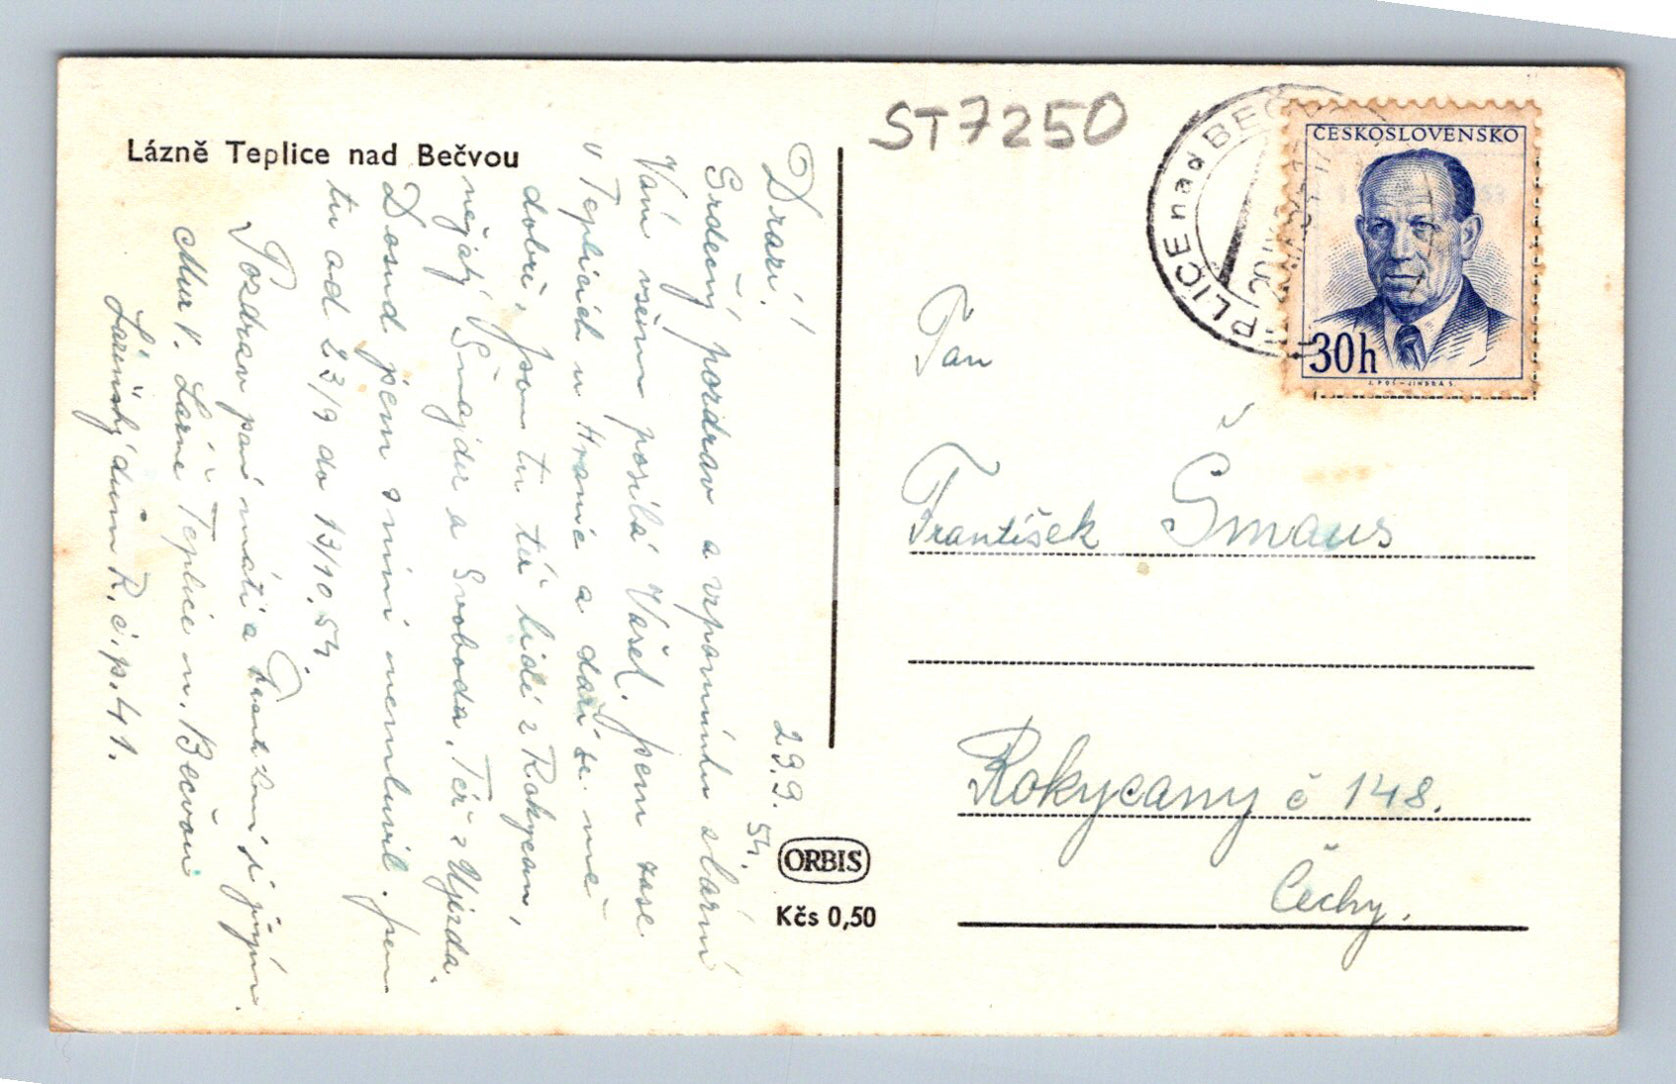 Lázně Teplice nad Bečvou
ST7250
TEPLICE nad BEČ
ČESKOSLOVENSKO
30h
Drazí! 29.9. 54.
Srdečný pozdrav a vzpomínku z lázní
Vám všem posílá Vašel. jsem zase
v Teplicích u Hranic a daří se mě
dobře, jsou tu též lidé z Rokycan,
nějaký Šmajder a Svoboda, Též z Újezda.
Dosud jsem s nimi nemluvil. jsem
tu od 23/9 do 13/10. 54.
Pozdrav paní máti a
V. Lázně Teplice n. Bečvou
Lázeňský dům R. č. p. 41.
Pan
František Šmaus
Rokycany č 148.
Čechy.
ORBIS
Kčs 0,50